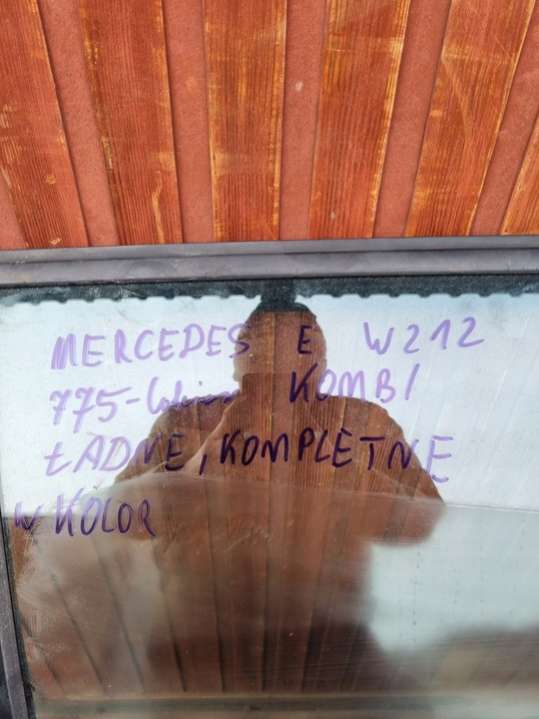 MERCEDES E W212
775- KOMBI
ŁADNE, KOMPLETNE
W KOLOR